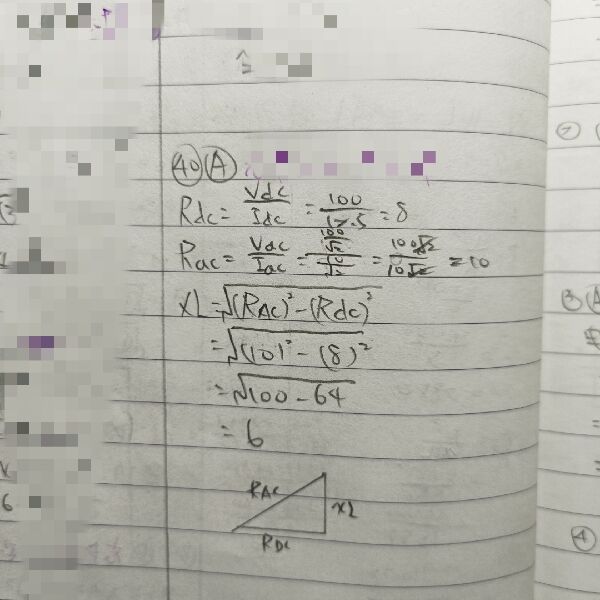 40 A
Rdc = Vdc / Idc = 100 / 12.5 = 8
Rac = Vac / Iac = (100/√2) / (10/√2) = 100√2 / 10√2 = 10
XL = √(RAC)² - (Rdc)²
= √(10)² - (8)²
= √100 - 64
= 6
RAC
XL
RDC
2
3 A
4
6